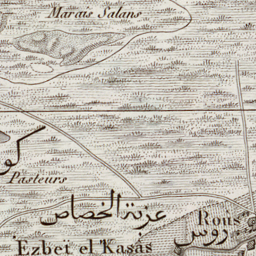 Marais Salans
كو
Pasteurs
عزبة الخصاص
Rous
روس
Ezbet el Kasâs